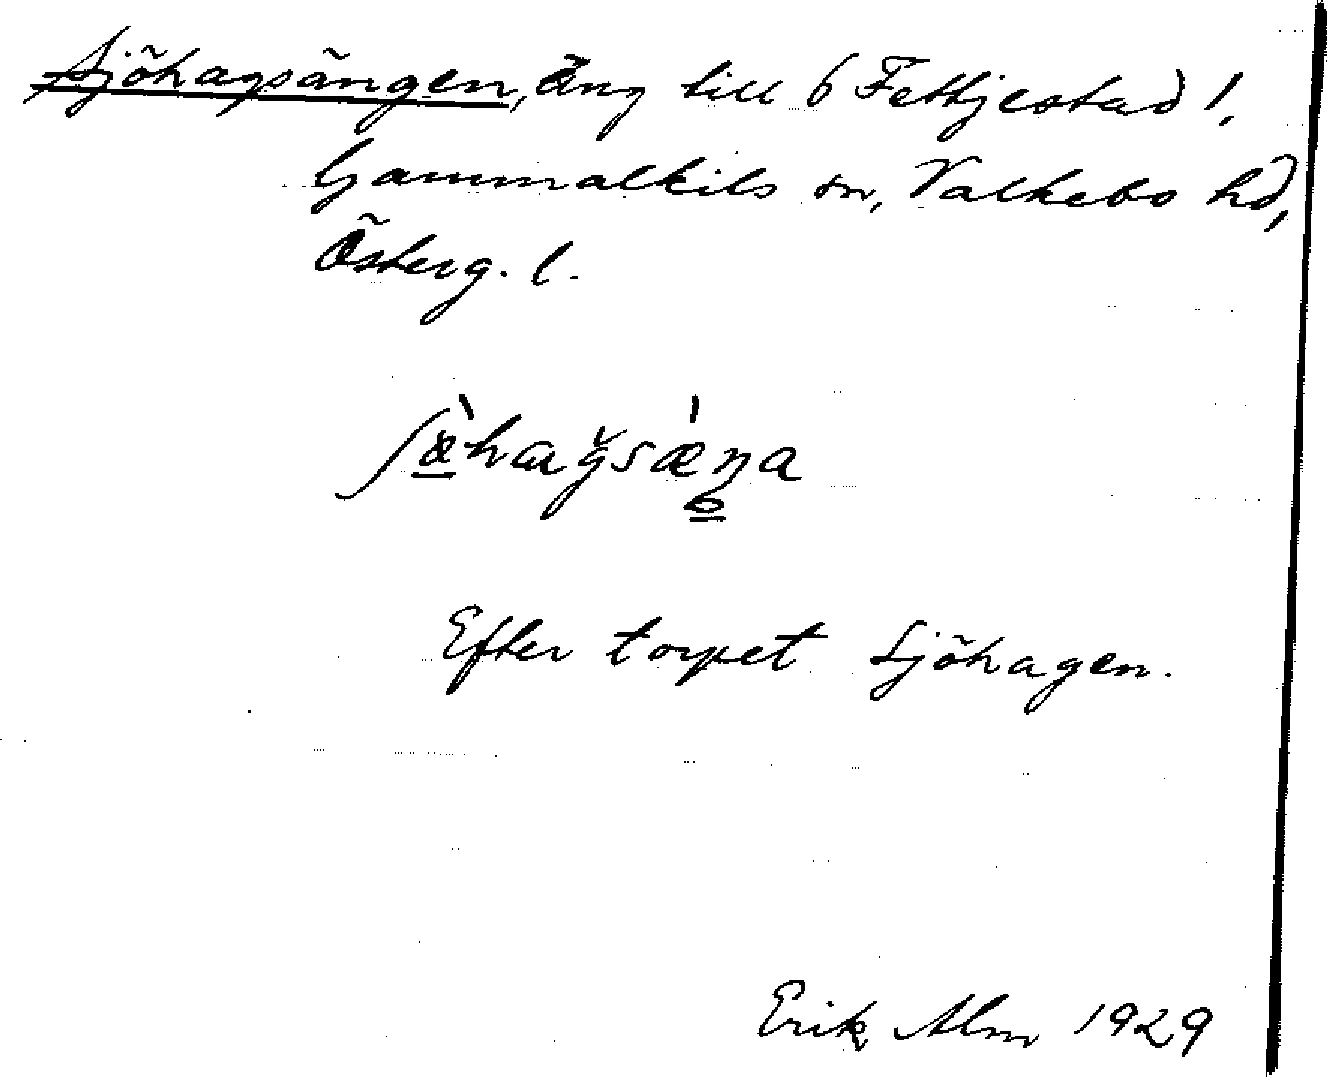 Sjöhagsängen, äng till 6 Fettjestad 1,
Gammalkils sn, Valkebo hd,
Österg. l.
Efter torpet Sjöhagen.
Erik Alm 1929